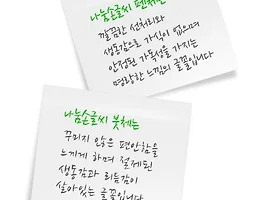 나눔손글씨 펜체는
깔끔한 선처리와
생동감으로 가식이 없으며
안정된 가독성을 가지는
명랑한 느낌의 글꼴입니다
나눔손글씨 붓체는
꾸미지 않은 편안함을
느끼게 하며 절제된
생동감과 리듬감이
살아있는 글꼴입니다